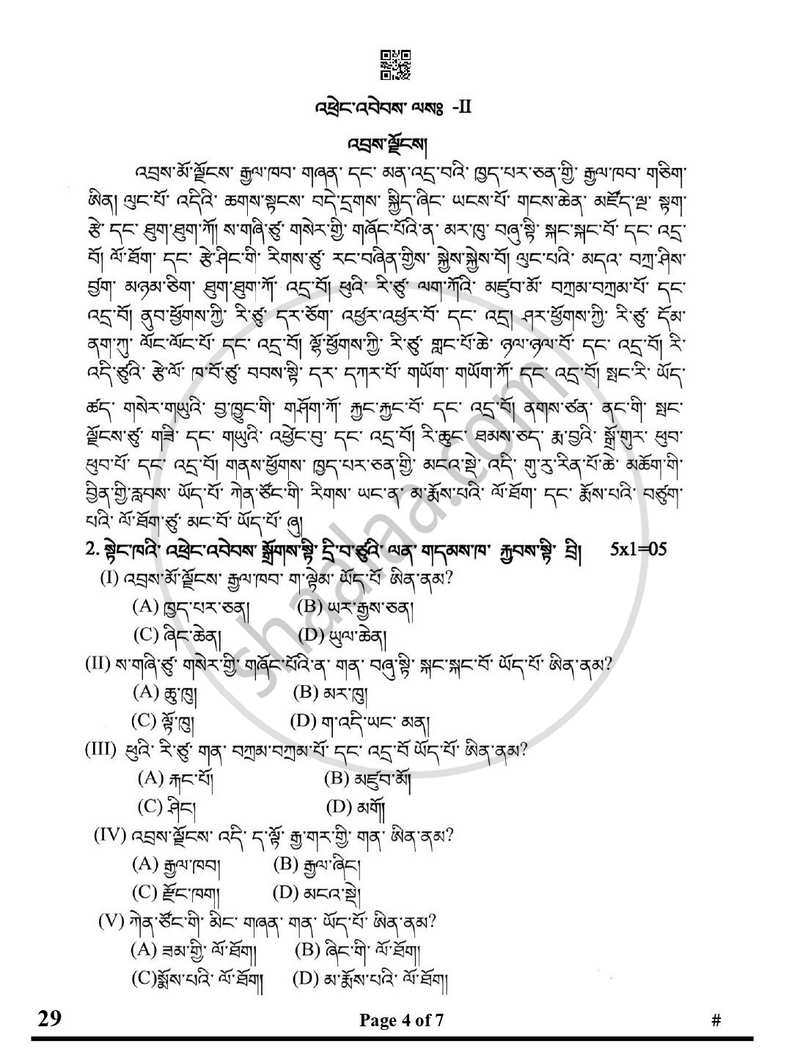 འཕྲེང་འབེབས་ ལསཿ -II
འབྲས་ལྗོངས།
འབྲས་མོ་ལྗོངས་ རྒྱལ་ཁབ་ གཞན་ དང་ མན་འདྲ་བའི་ ཁྱད་པར་ཅན་གྱི་ རྒྱལ་ཁབ་ གཅིག་
ཨིན། ལུང་པོ་ འདིའི་ ཆགས་སྟངས་ བདེ་དྲགས་ སྐྱིད་ཞིང་ ཡངས་པོ་ གངས་ཆེན་ མཛོད་ལྔ་ སྟག་
རྩེ་ དང་ ཐུག་ཐུག་ཀོ། ས་གཞི་ཙུ་ གསེར་གྱི་ གཞོང་པོའི་ན་ མར་ཁུ་ བཞུ་སྟི་ སྐང་སྐང་བོ་ དང་ འདྲ་
བོ། ལོ་ཐོག་ དང་ རྩེ་ཤིང་གི་ རིགས་ཙུ་ རང་བཞིན་གྱིས་ སྐྱེས་སྐྱེས་བོ། ལུང་པའི་ མདའ་ བཀྲ་ཤིས་
བྱོག་ མཉམ་ཅིག་ ཐུག་ཐུག་ཀོ་ འདྲ་བོ། ཕུའི་ རི་ཙུ་ ལག་ཀོའི་ མཛུབ་མོ་ བཀྲམ་བཀྲམ་པོ་ དང་
འདྲ་བོ། ནུབ་ཕྱོགས་ཀྱི་ རི་ཙུ་ དར་ཅོག་ འཕྱར་འཕྱར་བོ་ དང་ འདྲ། ཤར་ཕྱོགས་ཀྱི་ རི་ཙུ་ དོམ་
ནག་ཀུ་ ལོང་ལོང་པོ་ དང་ འདྲ་བོ། ལྷོ་ཕྱོགས་ཀྱི་ རི་ཙུ་ གླང་པོ་ཆེ་ ཉལ་ཉལ་བོ་ དང་ འདྲ་བོ། རི་
འདི་ཙུའི་ རྩེ་ལོ་ ཁ་བོ་ཙུ་ བབས་སྟི་ དར་ དཀར་པོ་ གཡོག་ གཡོག་ཀོ་ དང་ འདྲ་བོ། སྤང་རི་ ཡོད་
ཚད་ གསེར་གཡུའི་ བྱ་ཁྱུང་གི་ གཤོག་ཀོ་ རྐྱང་རྐྱང་བོ་ དང་ འདྲ་བོ། ནགས་ཙན་ ནང་གི་ སྤང་
ལྗོངས་ཙུ་ གཟི་ དང་ གཡུའི་ འཕྲེང་བུ་ དང་ འདྲ་བོ། རི་ཆུང་ ཐམས་ཅད་ རྨ་བྱའི་ སྒྲོ་གུར་ ཕུབ་
ཕུབ་པོ་ དང་ འདྲ་བོ། གནས་ཕྱོགས་ ཁྱད་པར་ཅན་གྱི་ མངའ་སྡེ་ འདི་ གུ་རུ་རིན་པོ་ཆེ་ མཆོག་གི་
བྱིན་གྱི་རླབས་ ཡོད་པོ་ ཀེན་ཙོང་གི་ རིགས་ ཡང་ན་ མ་རྨོས་པའི་ ལོ་ཐོག་ དང་ རྨོས་པའི་ བཙུག་
པའི་ ལོ་ཐོག་ཙུ་ མང་པོ་ ཡོད་པོ་ ཞུ།
2. སྟེང་ཁའི་ འཕྲེང་འབེབས་ སྒྲོགས་སྟི་ དྲི་བ་ཙུའི་ ལན་ གདམས་ཁ་ རྐྱབས་སྟི་ བྲི། 5x1=05
(I) འབྲས་མོ་ལྗོངས་ རྒྱལ་ཁབ་ ག་ལྟེམ་ ཡོད་པོ་ ཨིན་ནམ?
(A) ཁྱད་པར་ཅན། (B) ཡར་རྒྱས་ཅན།
(C) ཞིང་ཆེན། (D) ཡུལ་ཆེན།
(II) ས་གཞི་ཙུ་ གསེར་གྱི་ གཞོང་པོའི་ན་ གན་ བཞུ་སྟི་ སྐང་སྐང་བོ་ ཡོད་པོ་ ཨིན་ནམ?
(A) ཆུ་ཁུ། (B) མར་ཁུ།
(C) ལྟོ་ཁུ། (D) ག་འདི་ཡང་ མན།
(III) ཕུའི་ རི་ཙུ་ གན་ བཀྲམ་བཀྲམ་པོ་ དང་ འདྲ་བོ ཡོད་པོ་ ཨིན་ནམ?
(A) རྐང་པོ། (B) མཛུབ་མོ།
(C) ཤིང། (D) མགོ།
(IV) འབྲས་ལྗོངས་ འདི་ ད་ལྟོ་ རྒྱ་གར་གྱི་ གན་ ཨིན་ནམ?
(A) རྒྱལ་ཁབ། (B) རྒྱལ་ཞིང།
(C) རྫོང་ཁག། (D) མངའ་སྡེ།
(V) ཀེན་ཙོང་གི་ མིང་ གཞན་ གན་ ཡོད་པོ་ ཨིན་ནམ?
(A) ཟམ་གྱི་ ལོ་ཐོག། (B) ཞིང་གི་ ལོ་ཐོག།
(C)རྨོས་པའི་ ལོ་ཐོག། (D) མ་རྨོས་པའི་ ལོ་ཐོག།
shaalaa.com
29 Page 4 of 7 #